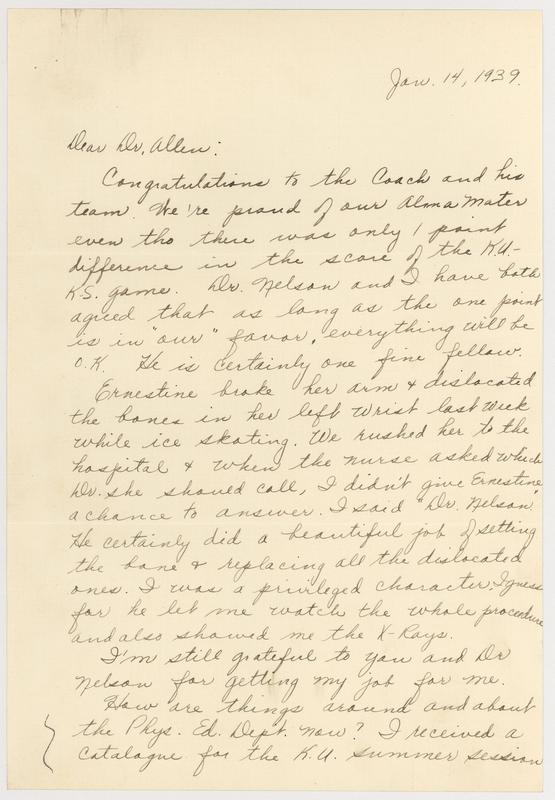 Jan. 14, 1939.
Dear Dr. Allen:
Congratulations to the Coach and his
team. We're proud of our Alma Mater
even tho there was only 1 point
difference in the score of the K.U-
K.S. game. Dr. Nelson and I have both
agreed that as long as the one point
is in "our" favor, everything will be
O.K. He is certainly one fine fellow.
Ernestine broke her arm & dislocated
the bones in her left wrist last week
while ice skating. We rushed her to the
hospital & when the nurse asked which
Dr. she should call, I didn't give Ernestine
a chance to answer. I said "Dr. Nelson"
He certainly did a beautiful job of setting
the bone & replacing all the dislocated
ones. I was a privileged character, I guess
for he let me watch the whole procedure
and also showed me the X-Rays.
I'm still grateful to you and Dr
Nelson for getting my job for me.
How are things around and about
the Phys. Ed. Dept. now? I received a
catalogue for the K.U. summer session